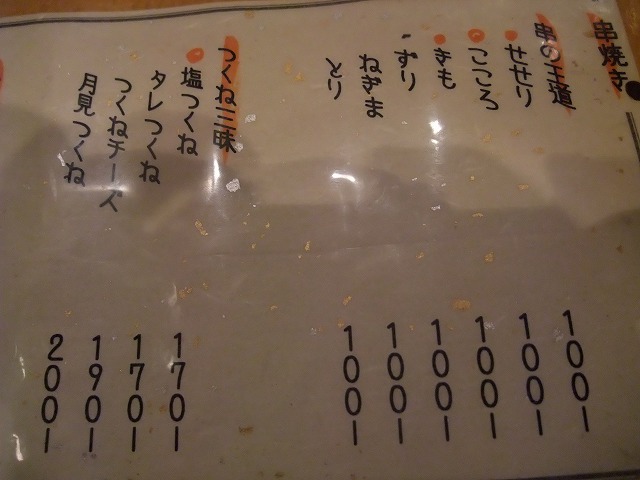 串焼き
串の王道
せせり 100ー
こころ 100ー
きも 100ー
ずり 100ー
ねぎま 100ー
とり 100ー
つくね三昧
塩つくね 170ー
タレつくね 170ー
つくねチーズ 190ー
月見つくね 200ー